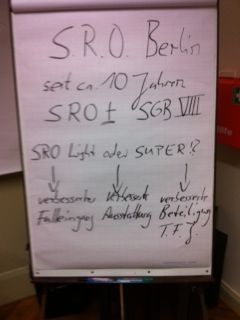 S.R.O. Berlin
seit ca. 10 Jahren
SRO ± SGB VIII
SRO Light oder SUPER!?
verbesserter verbesserte verbesserte
Falleingang Ausstattung Beteiligung
T.F.J.